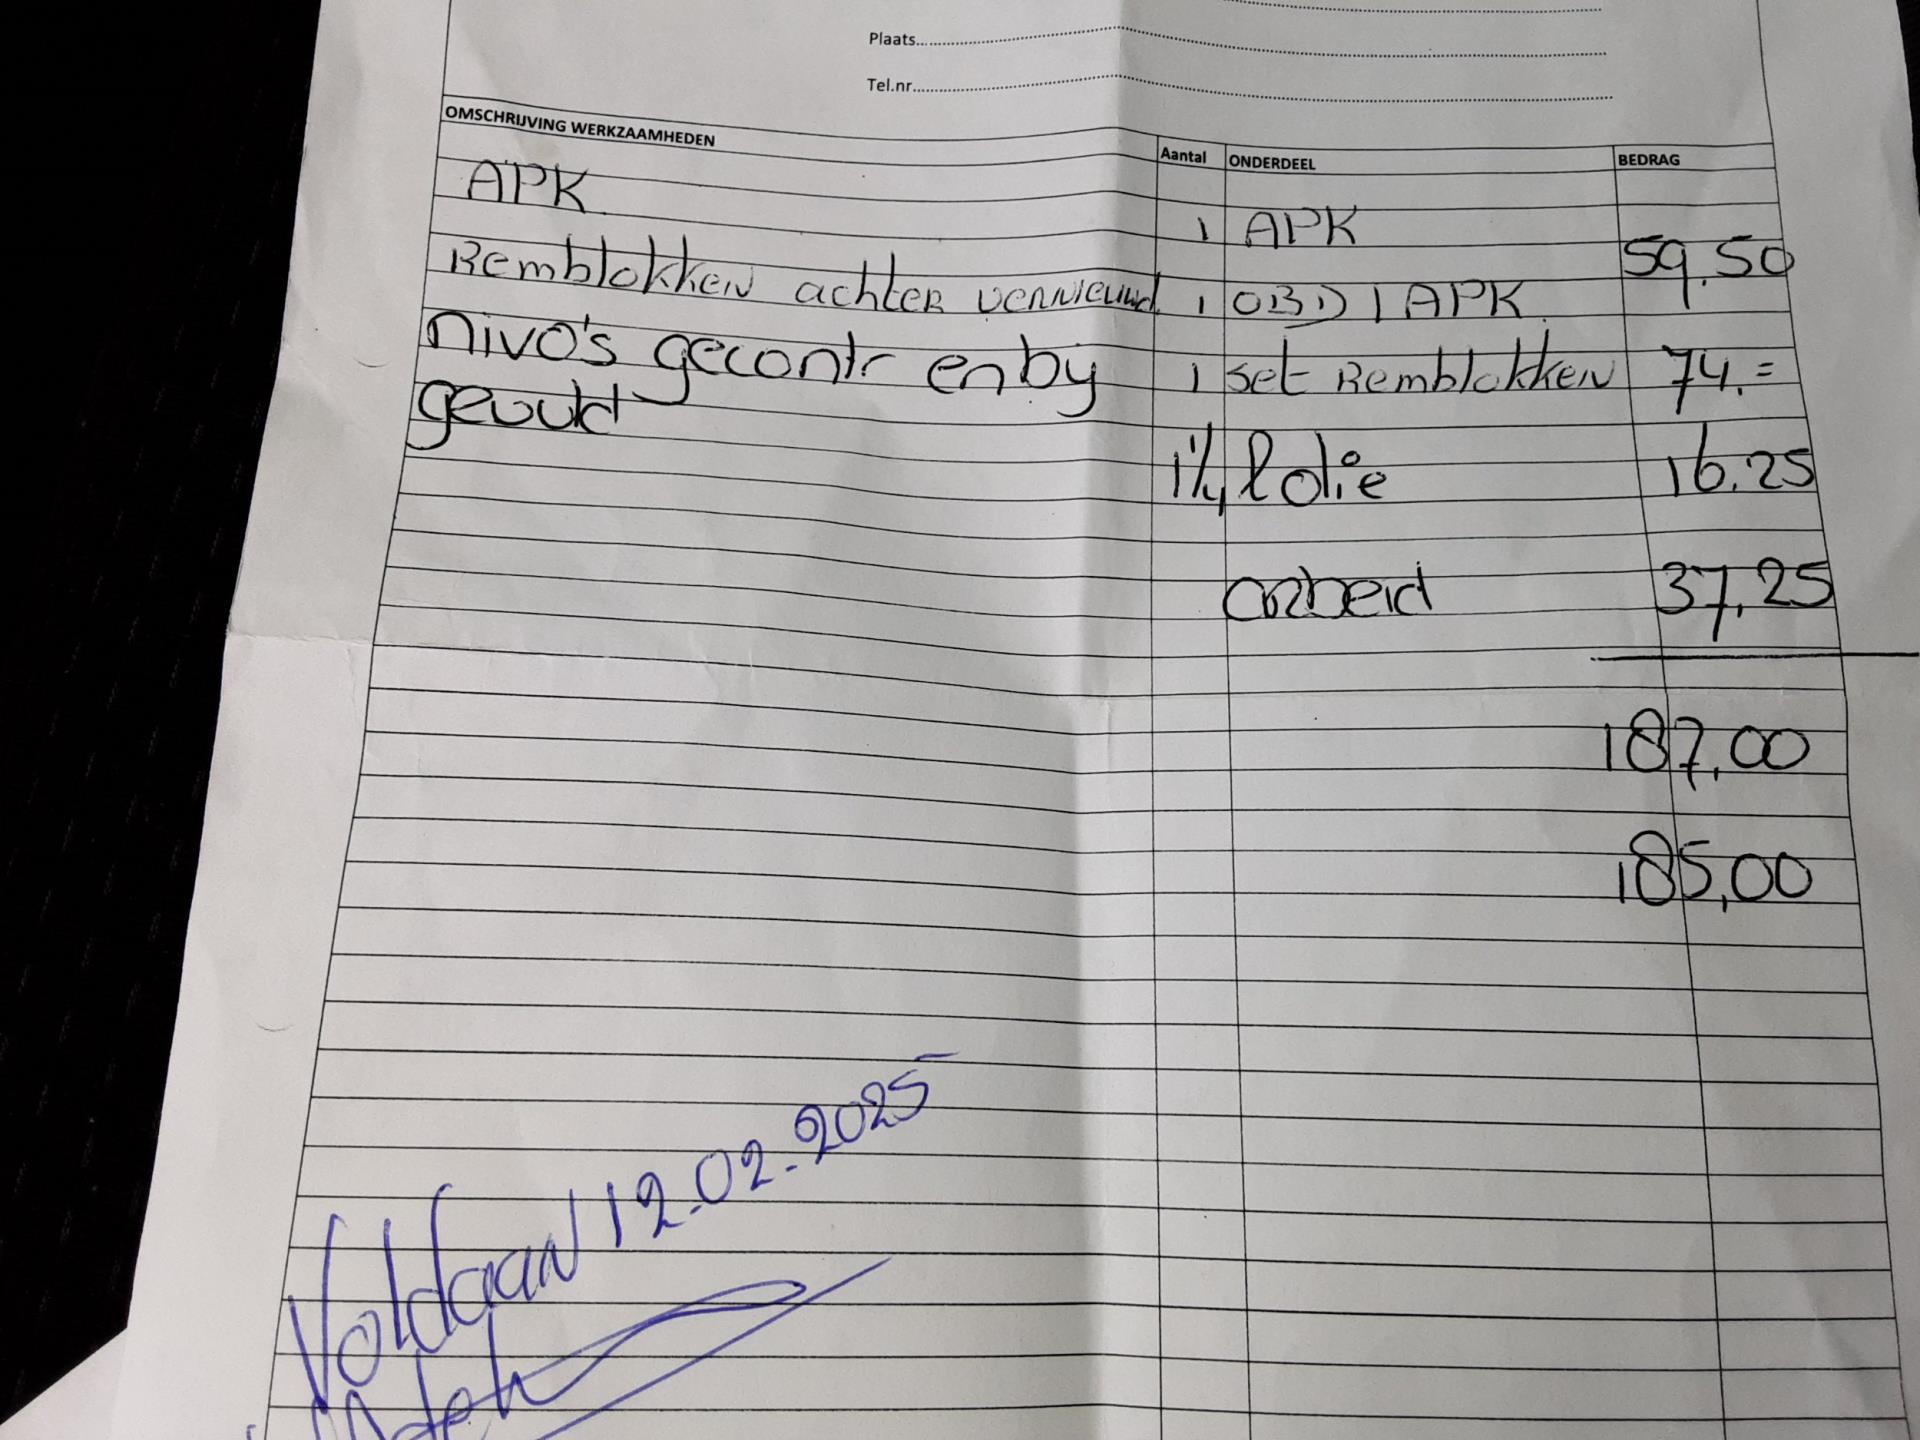 Plaats
Tel.nr
OMSCHRIJVING WERKZAAMHEDEN Aantal ONDERDEEL BEDRAG
APK 1 APK 59,50
Remblokken achter vernieuwd 1 OBD / APK
nivo's gecontr en bij 1 set Remblokken 74.=
gevuld 1 1/4 l olie 16.25
arbeid 37,25
187,00
185,00
Voldaan 12-02-2025